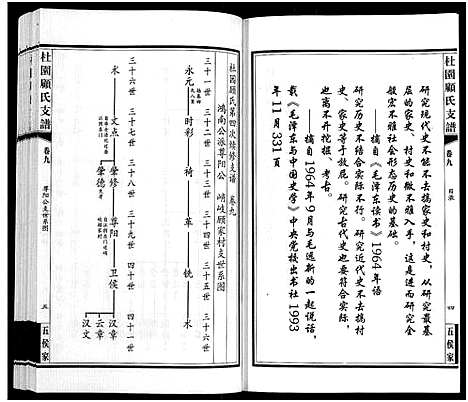 杜園顧氏支譜
卷九
目录
四
五侯家
研究现代史不能不去搞家史和村史，从研究最基
层的家史、村史和做不难入手，这是进而研究全
般宏不雅社会形态历史的基础。
——摘自《毛泽东读书》1964年语
研究历史不结合实际不行。研究近代史不去搞村
史、家史等于放屁。研究古代史也要符合实际，
也离不开挖掘、考古。
——摘自1964年9月与毛远新的一起说话，
载《毛泽东与中国史学》中央党校出书社1993
年11月331頁
杜园顾氏第四次修支谱 卷九
鸿南公派尊阳公 峭岐顾家村支世系图
三十一世 三十二世 三十三世 三十四世 三十五世 三十六世
永元 时彩 椅 革 铣 水
三十六世 三十七世 三十八世 三十九世 四十世 四十一世
水 文点 肇修 尊阳 卫侯 汉章
肇德 云章
汉文
杜園顧氏支譜
卷九
尊阳公支世系图
五
五侯家